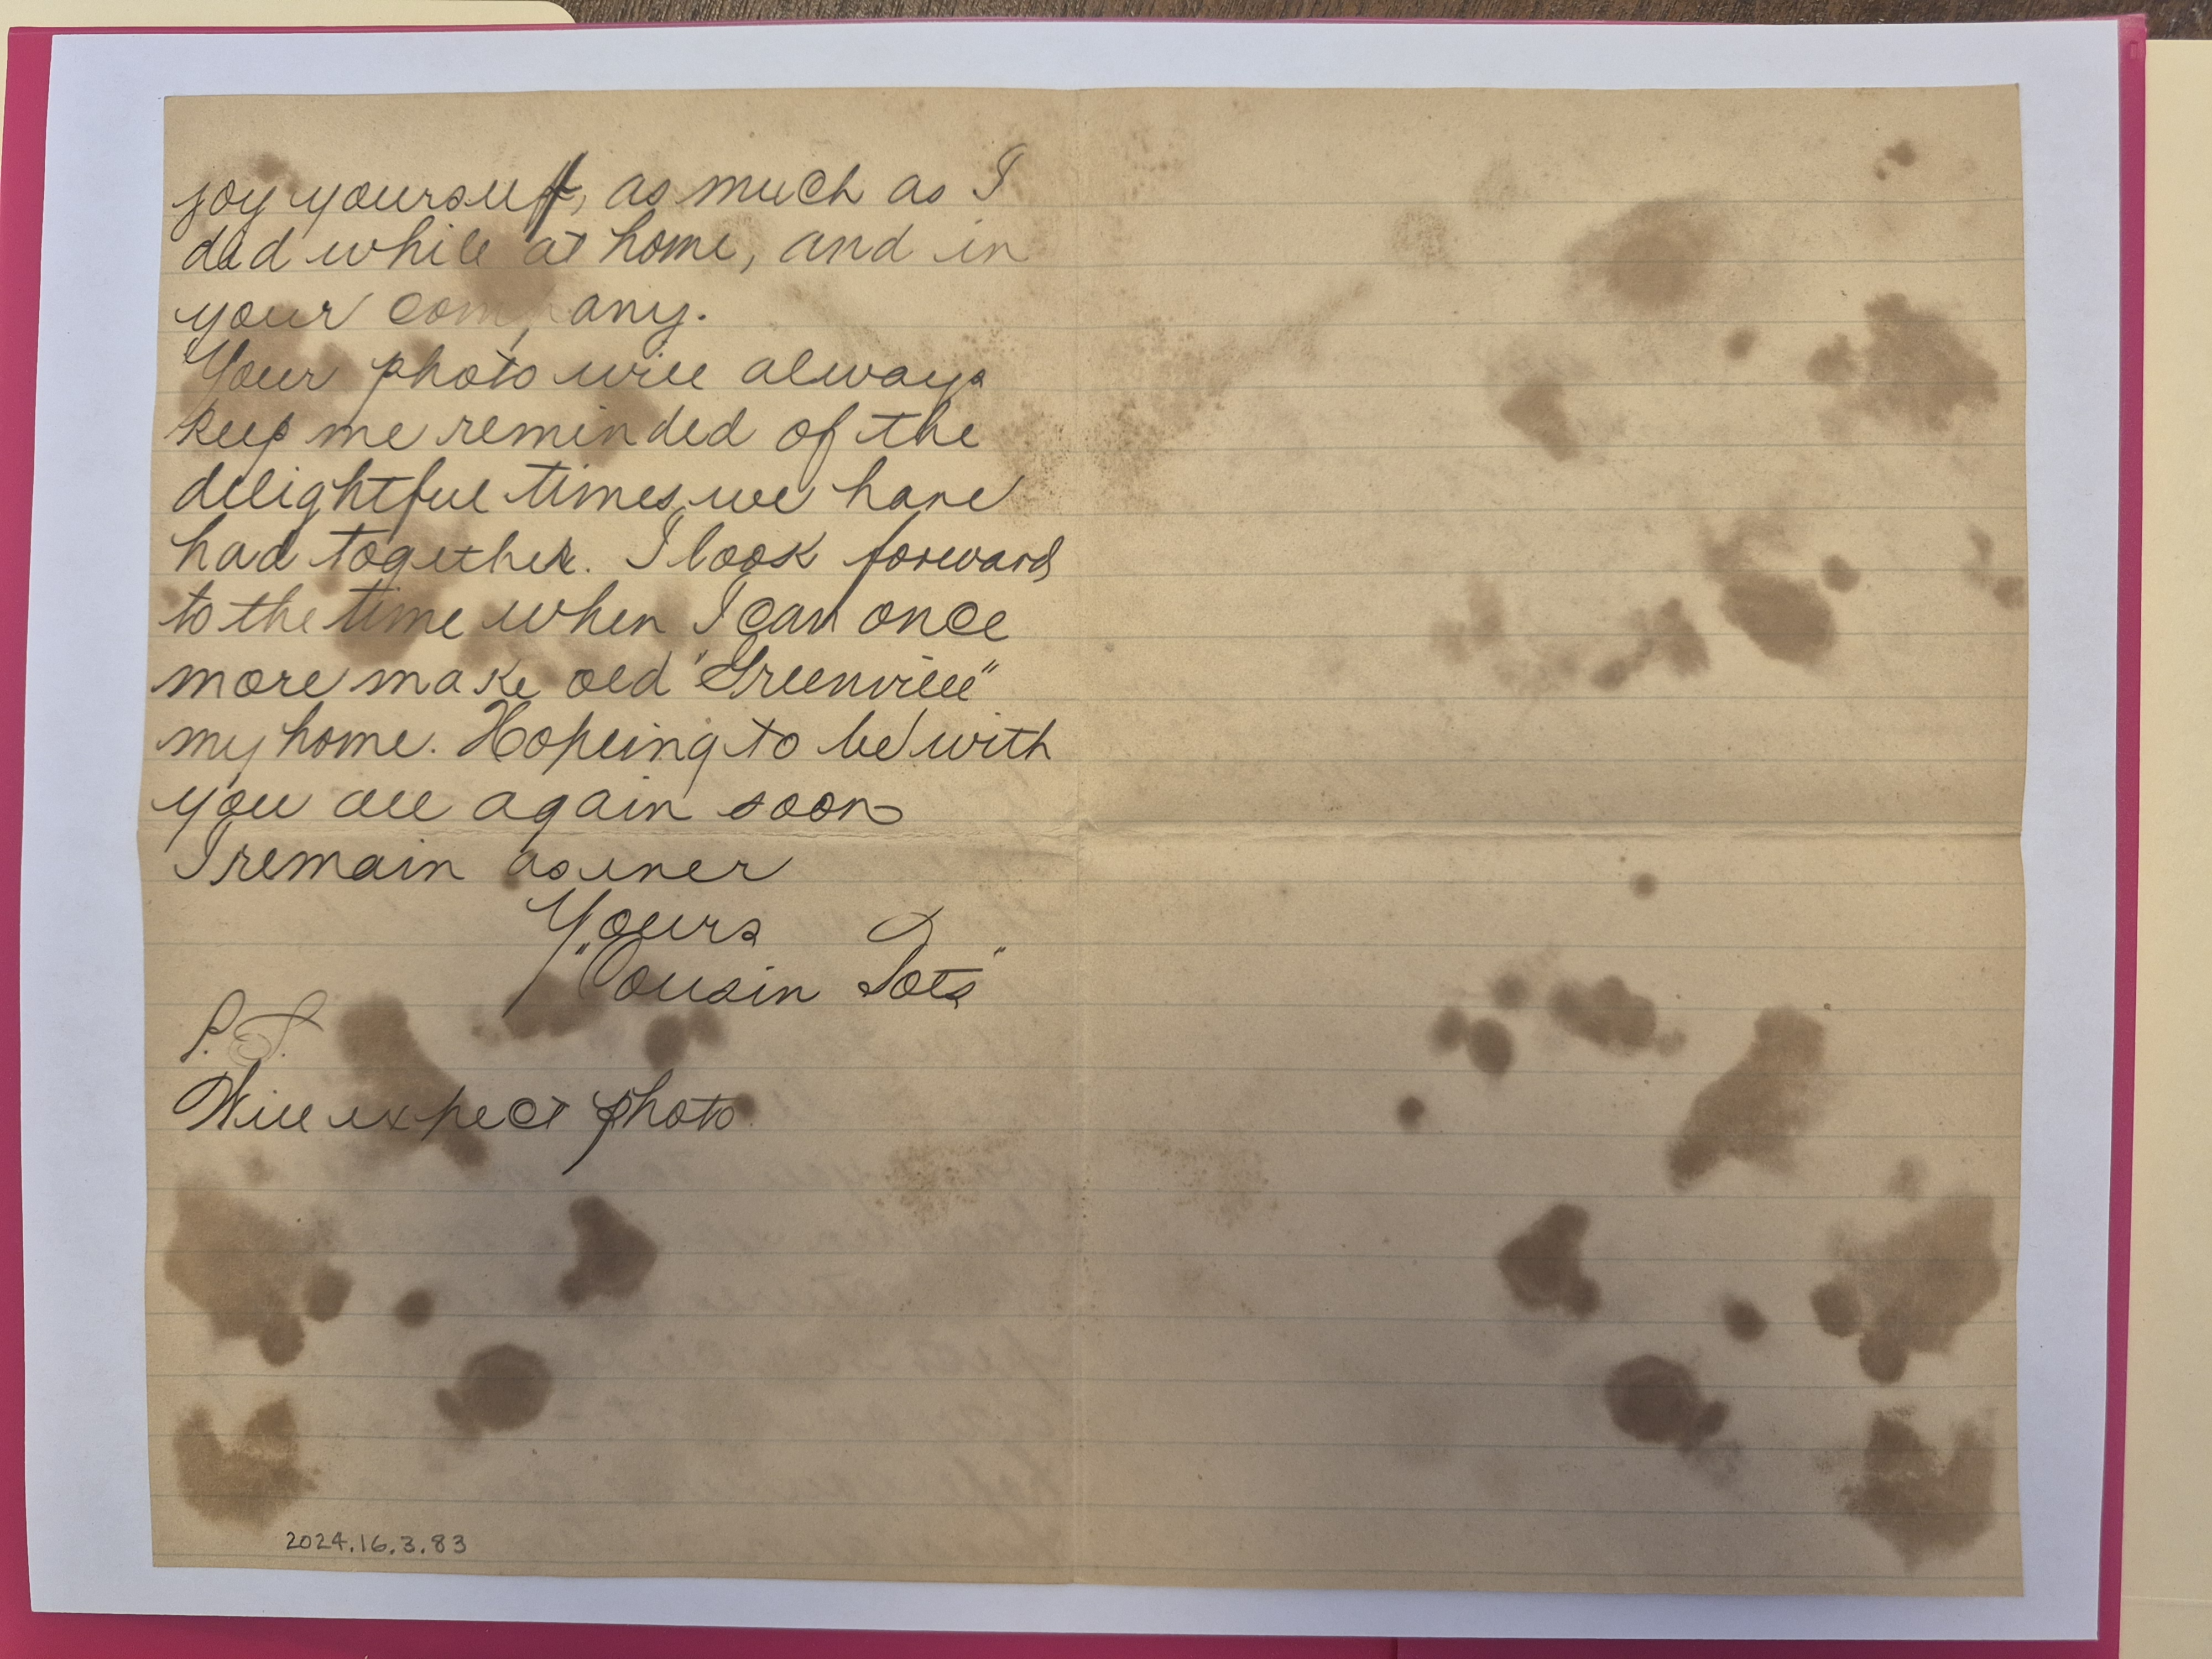 joy yourself, as much as I
did while at home, and in
your company.
Your photo will always
keep me reminded of the
delightful times we have
had together. I look forward
to the time when I can once
more make old "Greenville"
my home. Hopeing to be with
you all again soon
I remain as ever
Yours
"Cousin Tots"
P.S.
Will expect photo.
2024.16.3.83